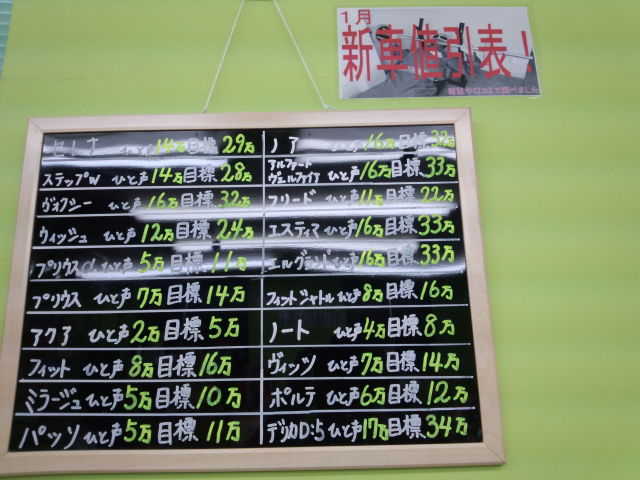 1月
新車値引表!
雑誌や口コミで調べました
セレナ ひと声14万目標29万
ステップW ひと声14万目標28万
ヴォクシー ひと声16万目標32万
ウィッシュ ひと声12万目標24万
プリウスα ひと声5万目標11万
プリウス ひと声7万目標14万
アクア ひと声2万目標5万
フィット ひと声8万目標16万
ミラージュ ひと声5万目標10万
パッソ ひと声5万目標11万
ノア ひと声16万目標32万
アルファード
ヴェルファイア ひと声16万目標33万
フリード ひと声11万目標22万
エスティマ ひと声16万目標33万
エルグランド ひと声16万目標33万
フィットシャトル ひと声8万目標16万
ノート ひと声4万目標8万
ヴィッツ ひと声7万目標14万
ポルテ ひと声6万目標12万
デリカD:5 ひと声17万目標34万